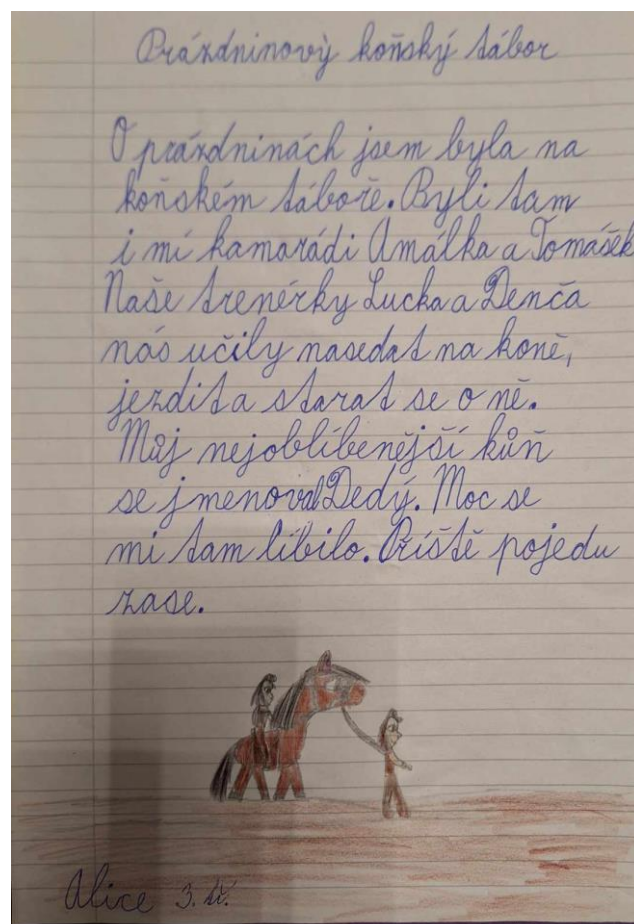 Prázdninový koňský tábor
O prázdninách jsem byla na
koňském táboře. Byli tam
i mí kamarádi Amálka a Tomášek
Naše trenérky Lucka a Denča
nás učily nasedat na koně,
jezdit a starat se o ně.
Můj nejoblíbenější kůň
se jmenoval Dedý. Moc se
mi tam líbilo. Příště pojedu
zase.
Alice 3. tř.